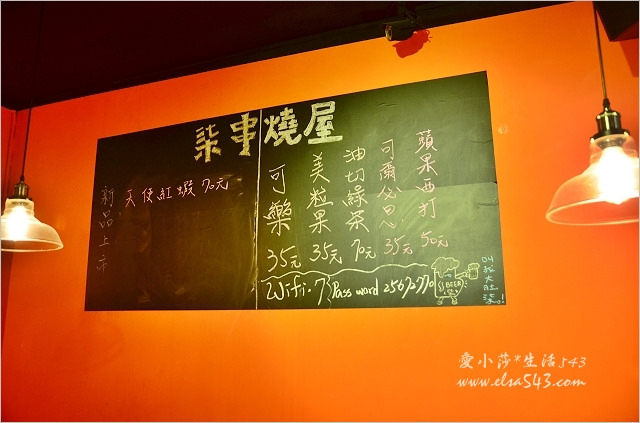 柒串燒屋
新品上市
天使紅蝦 70元
可樂 35元
美粒果 35元
油切綠茶 70元
可爾必思 35元
蘋果西打 50元
Wifi:7 Pass word 25672770
BEER
愛小莎*生活543
www.elsa543.com